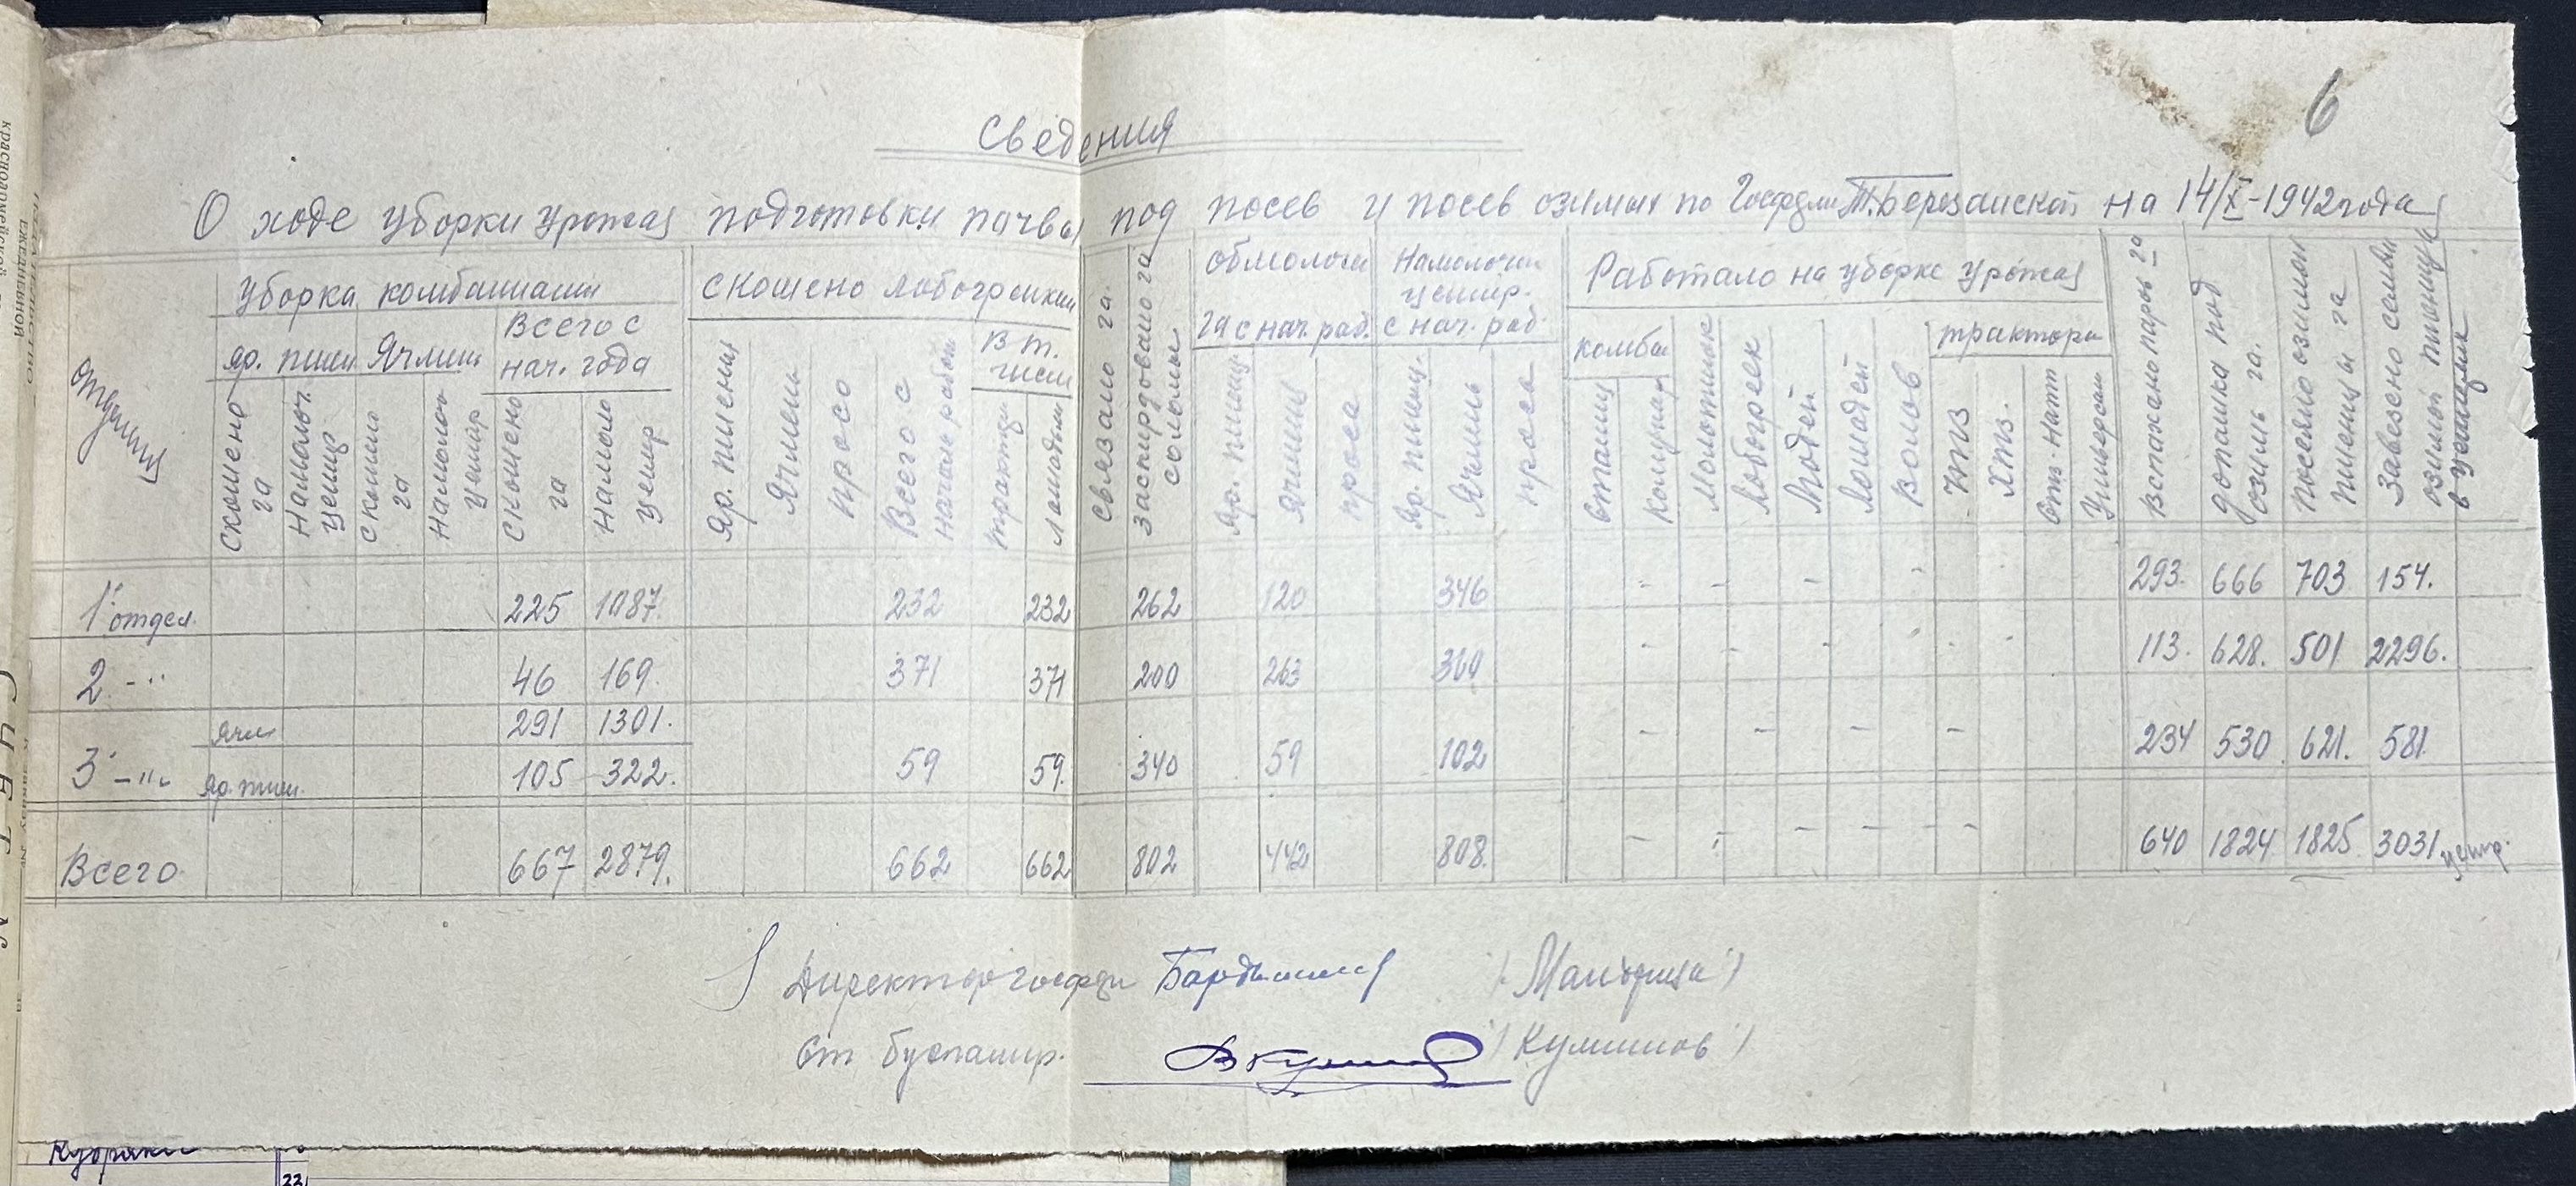 6
Сведения
О ходе уборки урожая подготовки пачвы под посев и посев озимых по Госфдли Т.Березанской на 14/X-1942 года
Отделения
Уборка комбаинами
яр. пшен Ячмин Всего с нач. года
Скошено га
Намолоч. центр
Скошено га
Намолоч центр
Скошено га
Намоло центр
Скошено лобогрейками
Яр. пшеница
Ячмень
просо
Всего с начала работ
в т. числе
трактор
лошадьми
Связано га.
Заскирдовано га соломы
обмолочен га с нач. раб.
Яр. пшениц
Ячменя
проса
Намолочен центр. с нач. раб.
Яр. пшениц.
Ячмень
проса
Работало на уборке урожая
комба
Сталинц
Комунар
Молотилок
Лобогреек
Людей
Лошадей
Волов
трактора
ЧТЗ
ХТЗ
Отз-Натт
Универсал
Вспахано паров га
допашка под озимь га.
Посеяно озимой пшеницы га
Завезено семян озимой пшеницы в центнер
1 отдел. 225 1087. 232 232 262 120 346 - - - - 293. 666 703 154.
2. -" 46 169. 371 371 200 263 360 - - - - - - 113. 628. 501 2296.
ячм 291 1301.
3 -"- яр. пшен. 105 322. 59 59. 340 59 102 - - - - 234 530 621. 581
Всего 667 2879. 662 662 802 442 808. - - - - - - 640 1824 1825 3031 центр.
Директор госфдл
От
(Куминов)
Кудряки